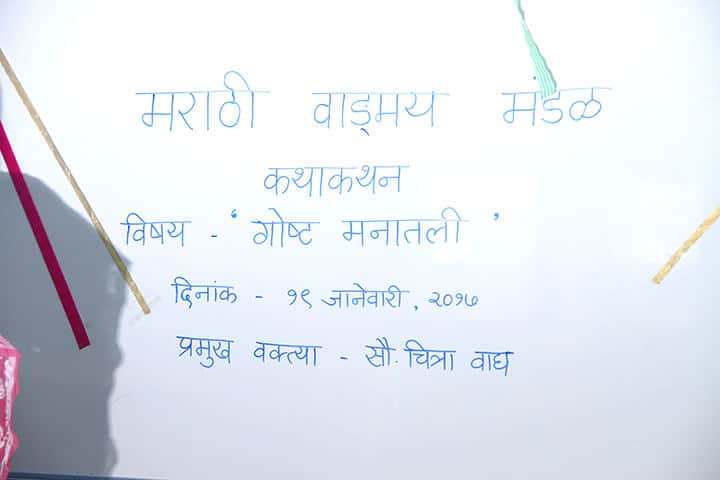 मराठी वाङ्मय मंडळ
कथाकथन
विषय - ‘ गोष्ट मनातली ’
दिनांक - १९ जानेवारी, २०१७
प्रमुख वक्त्या - सौ. चित्रा वाघ